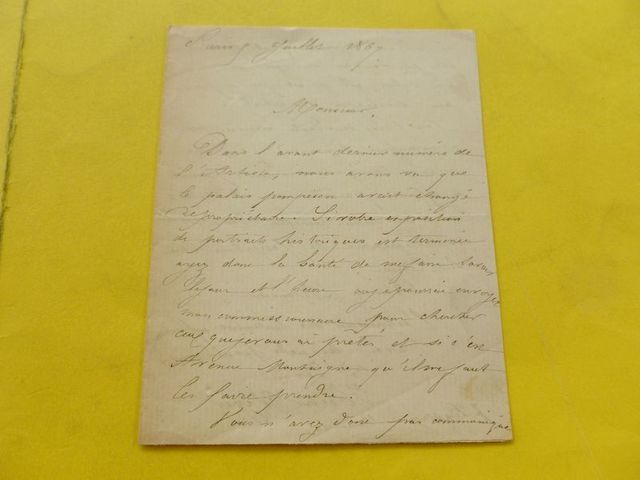 Paris 9 Juillet 1867
Monsieur,
Dans l'avant dernier numéro de
l'Artiste, nous avons vu que
le palais pompeien avait changé
de propriétaire. Si votre exposition
de portraits historiques est terminée
ayez donc la bonté de me faire savoir
le jour et l'heure où je pourrai envoyer
mon commissionnaire pour chercher
ceux que je vous ai prêtés et si c'est
Avenue Montaigne qu'il me faut
les faire prendre.
Vous n'avez donc pas communiqué